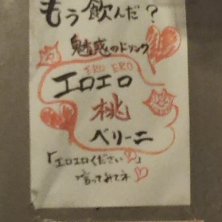 もう飲んだ？
魅惑のドリンク
ERO ERO
エロエロ
桃
ベリーニ
「エロエロください♡」
言ってみてネ♡